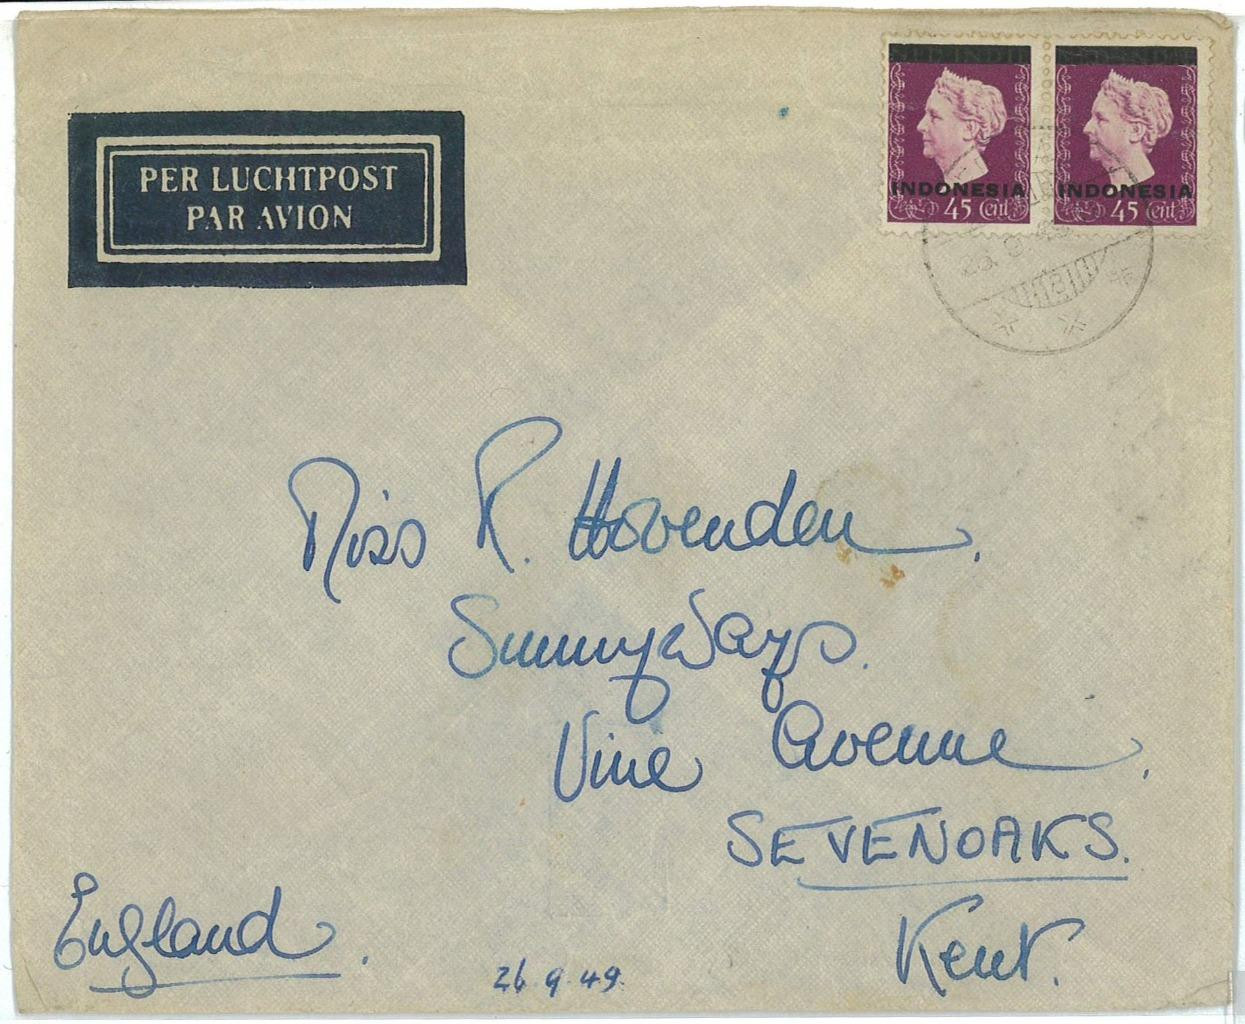 PER LUCHTPOST
PAR AVION
INDONESIA INDONESIA
45 Cent 45 Cent
Miss R. Hovenden.
Sunnyways.
Vine Avenue.
SEVENOAKS.
Kent.
England.
26.9.49.